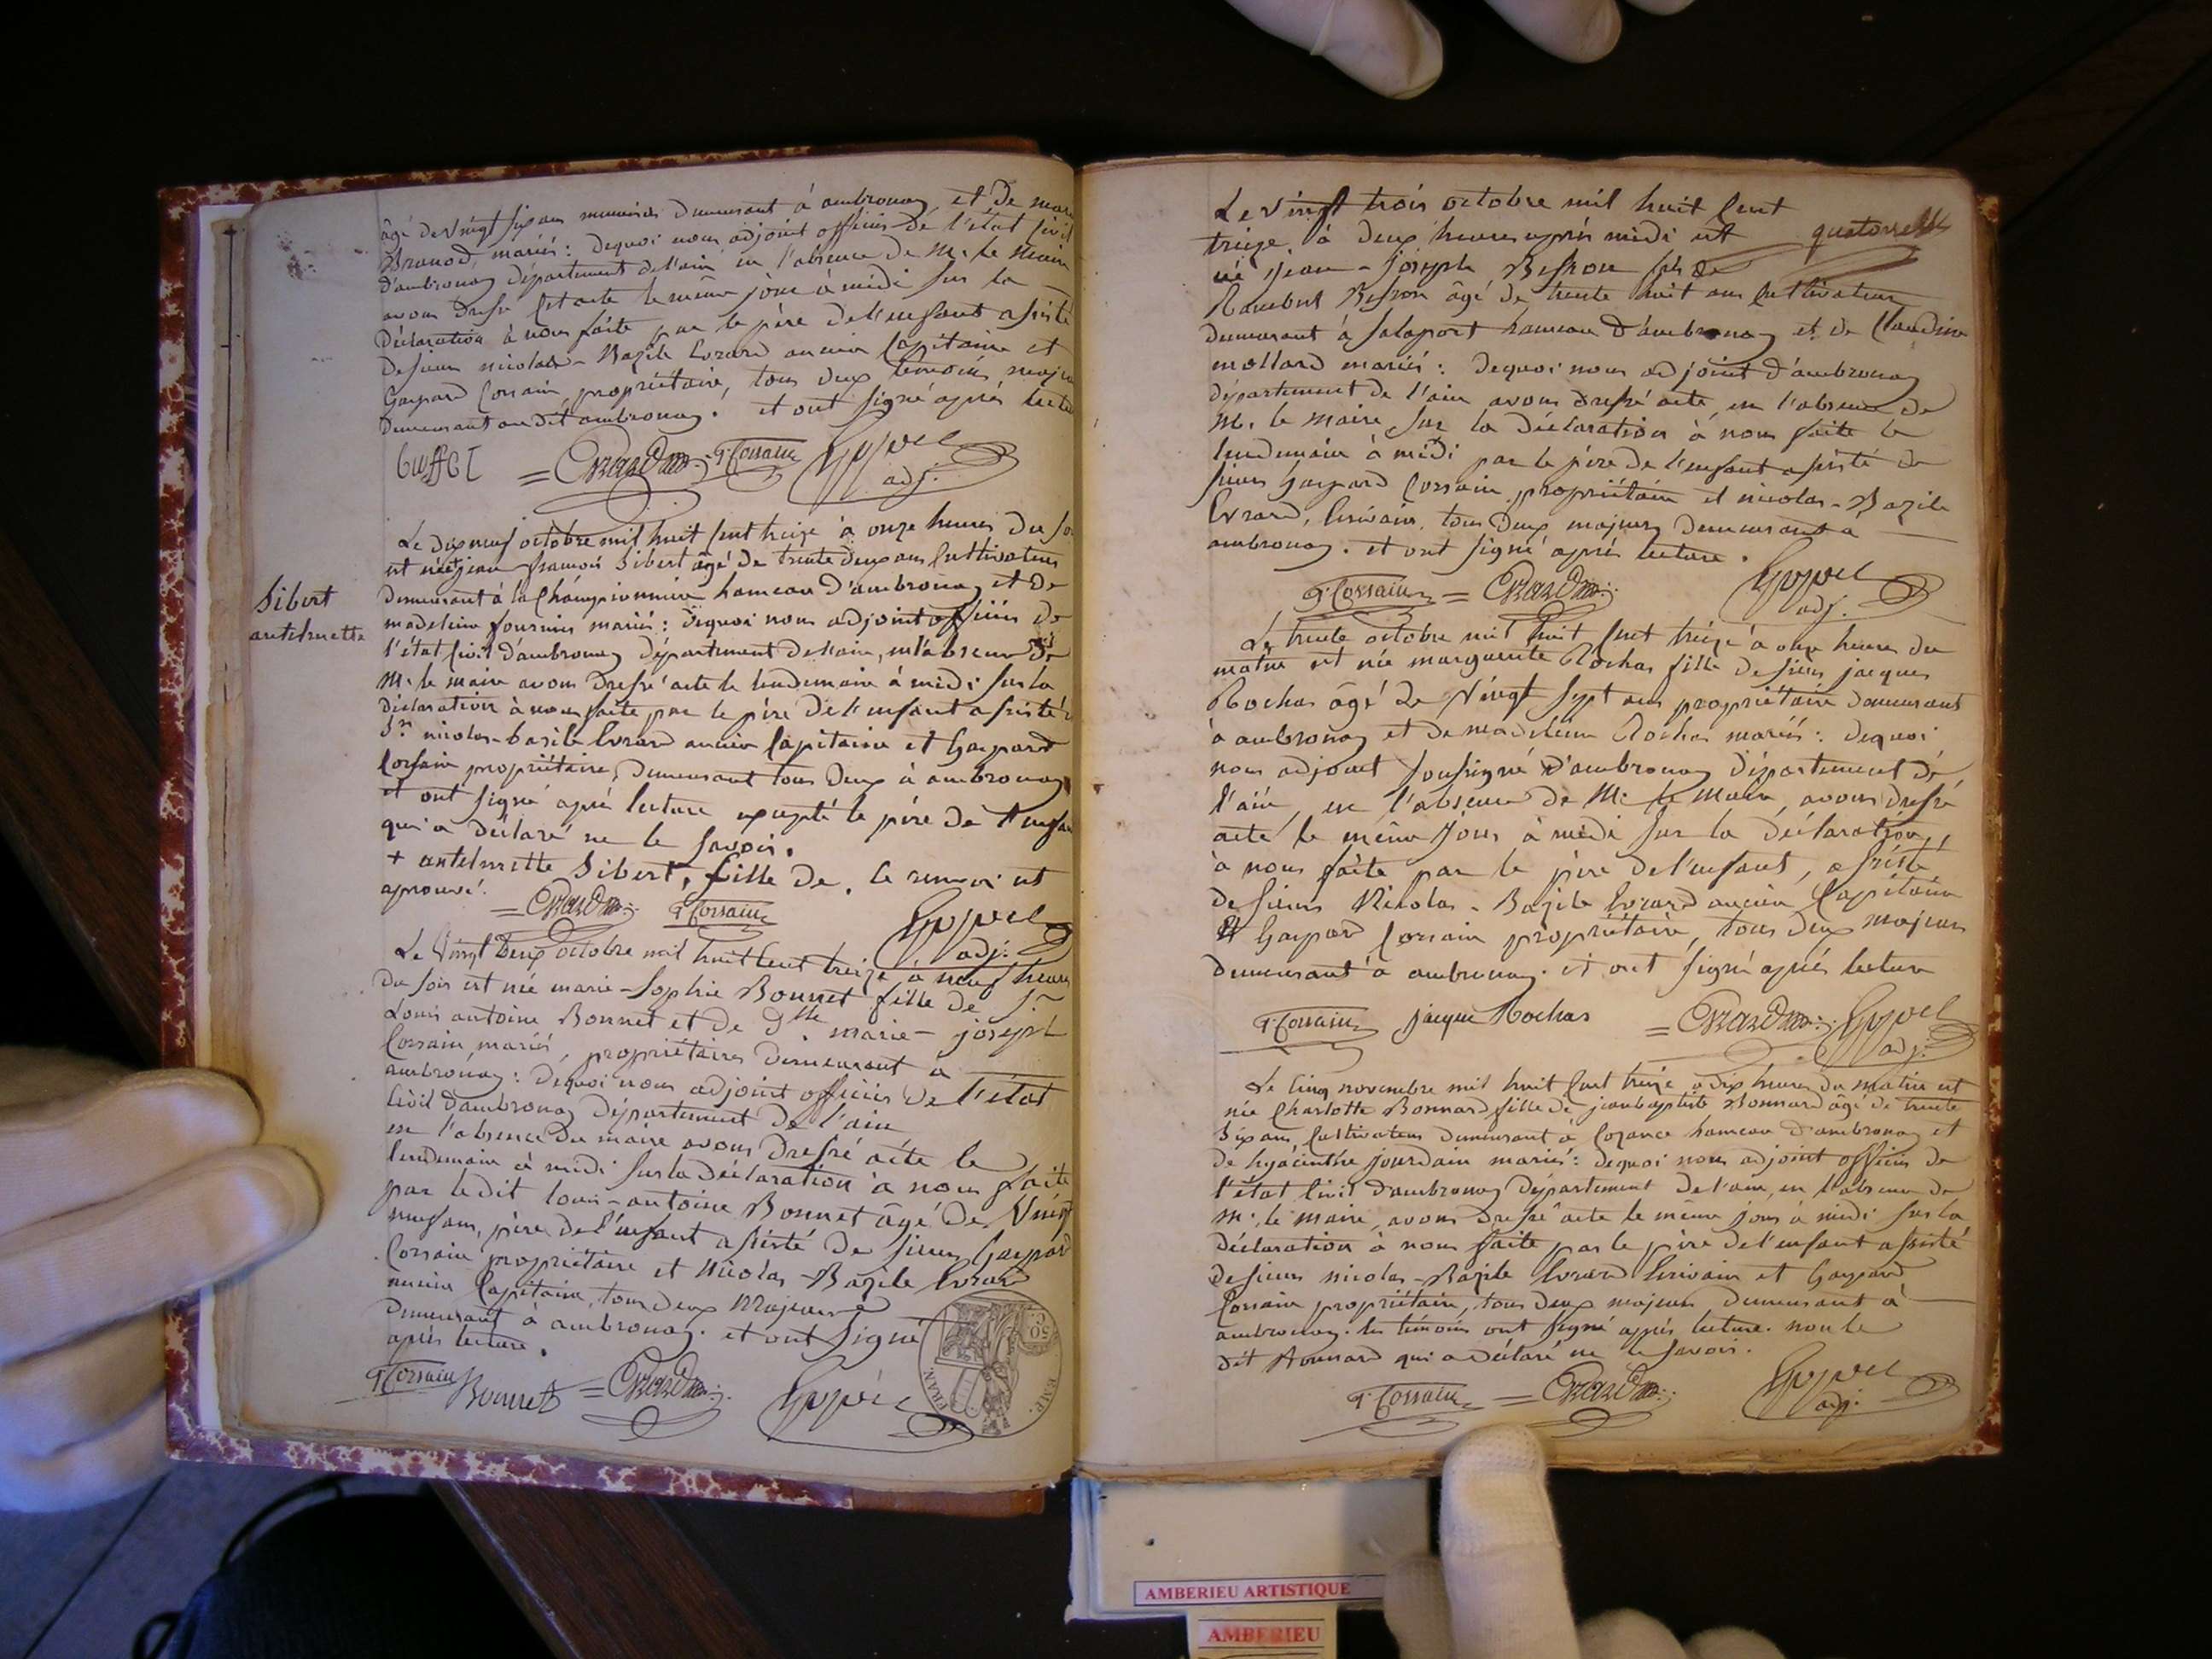 âgé de vingt six ans demeurant à ambronay, et de marie
mariés : dequoi nous adjoint officier de l'état civil
d'ambronay département de l'ain en l'absence de M. le Maire
avons dressé cet acte le même jour à midi sur la
déclaration à nous faite par le père de l'enfant assisté
de sieurs nicolas-Bazile Evrard ancien Capitaine et
Gaspard Corsain, propriétaire, tous deux témoins majeurs
demeurant au dit ambronay. et ont signé après lecture
= Evrard G. Corsain adj.
Le dix neuf octobre mil huit cent treize à onze heures du soir
est née + jean françois Sibert âgé de trente deux ans cultivateur
Sibert
antelmette
demeurant à la Championnière hameau d'ambronay et de
madeleine fournier mariés : dequoi nous adjoint officier de
l'état civil d'ambronay département de l'ain, en l'absence de
M. le maire avons dressé acte le lendemain à midi sur la
déclaration à nous faite par le père de l'enfant assisté de
Sr. nicolas-bazile Evrard ancien Capitaine et Gaspard
Corsain propriétaire, demeurant tous deux à ambronay
et ont signé après lecture excepté le père de l'enfant
qui a déclaré ne le savoir.
+ antelmette Sibert, fille de. le renvoi est
aprouvé.
= Evrard G. Corsain adj.
Le Vingt Deux octobre mil huit cent treize à neuf heures
du soir est née marie-Sophie Bonnet fille de Sr.
Louis antoine Bonnet et de dlle marie-joseph
Corsain mariés, propriétaires demeurant à
ambronay : dequoi nous adjoint officier de l'état
civil d'ambronay département de l'ain
en l'absence du maire avons dressé acte le
lendemain à midi sur la déclaration à nous faite
par le dit louis-antoine Bonnet âgé de Vingt
neuf ans, père de l'enfant assisté de sieurs Gaspard
Corsain propriétaire et Nicolas-Bazile Evrard
ancien Capitaine, tous deux Majeurs
demeurant à ambronay. et ont signé
après lecture.
G. Corsain Bonnet = Evrard
50 C.
EMP. FRAN.
Le vingt trois octobre mil huit cent
treize à deux heures après midi est
né jean-joseph Besson fils de
Rambert Besson âgé de trente huit ans cultivateur
demeurant à Salaport hameau d'ambronay et de Claudine
mollard mariés : dequoi nous adjoint d'ambronay
département de l'ain avons dressé acte, en l'absence de
M. le maire, sur la déclaration à nous faite le
lendemain à midi par le père de l'enfant assisté de
sieurs Gaspard Corsain propriétaire et nicolas-Bazile
Evrard, Ecrivain, tous deux majeurs demeurant à
ambronay. et ont signé après lecture.
G. Corsain = Evrard adj.
Le trente octobre mil huit cent treize à onze heures du
matin est née marguerite Rochas fille de sieur jacques
Rochas âgé de Vingt Sept ans propriétaire demeurant
à ambronay et de madeleine Rochas mariés : dequoi
nous adjoint soussigné d'ambronay département de
l'ain, en l'absence de M. le Maire, avons dressé
acte le même jour à midi sur la déclaration
à nous faite par le père de l'enfant, assisté
de sieurs Nicolas-Bazile Evrard ancien Capitaine
et Gaspard Corsain propriétaire, tous deux majeurs
demeurant à ambronay. et ont signé après lecture
G. Corsain jacque Rochas = Evrard adj.
Le Cinq novembre mil huit cent treize à dix heures du matin est
née Charlotte Bonnard fille de jean baptiste Bonnard âgé de trente
six ans, Cultivateur demeurant à Cozance hameau d'ambronay et
de hyacinthe jourdain mariés : dequoi nous adjoint officier de
l'état civil d'ambronay département de l'ain, en l'absence de
M. le maire, avons dressé acte le même jour à midi sur la
déclaration à nous faite par le père de l'enfant assisté
de sieurs nicolas-Bazile Evrard Ecrivain et Gaspard
Corsain propriétaire, tous deux majeurs demeurant à
ambronay. les témoins ont signé après lecture. non le
dit Bonnard qui a déclaré ne le savoir.
G. Corsain = Evrard adj.
AMBERIEU ARTISTIQUE
AMBERIEU